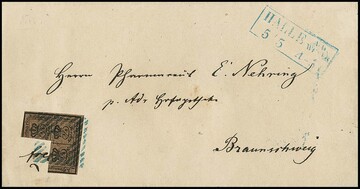 HALLE
5 5
Herrn Pharmaceut E. Nehring
p. Adr Hofapotheke
Braunschweig
frei